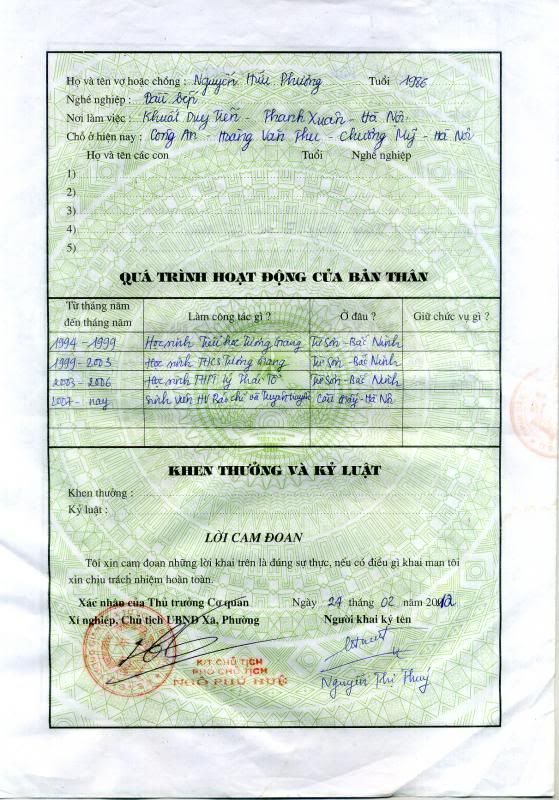 Họ và tên vợ hoặc chồng : Nguyễn Hữu Phương Tuổi 1986
Nghề nghiệp : Đầu bếp
Nơi làm việc : Khuất Duy Tiến - Thanh Xuân - Hà Nội
Chỗ ở hiện nay : Công An - Hoàng Văn Thụ - Chương Mỹ - Hà Nội
Họ và tên các con Tuổi Nghề nghiệp
1)
2)
3)
4)
5)
QUÁ TRÌNH HOẠT ĐỘNG CỦA BẢN THÂN
Từ tháng năm đến tháng năm Làm công tác gì ? Ở đâu ? Giữ chức vụ gì ?
1994 - 1999 Học sinh Tiểu học Tương Giang Từ Sơn - Bắc Ninh
1999 - 2003 Học sinh THCS Tương Giang Từ Sơn - Bắc Ninh
2003 - 2006 Học sinh THPT Lý Thái Tổ Từ Sơn - Bắc Ninh
2007 - nay Sinh viên HV Báo chí và Tuyên truyền Cầu Giấy - Hà Nội
VIỆT NAM
KHEN THƯỞNG VÀ KỶ LUẬT
Khen thưởng :
Kỷ luật :
LỜI CAM ĐOAN
Tôi xin cam đoan những lời khai trên là đúng sự thực, nếu có điều gì khai man tôi
xin chịu trách nhiệm hoàn toàn.
Xác nhận của Thủ trưởng Cơ quan Ngày 24 tháng 02 năm 2012
Xí nghiệp, Chủ tịch UBND Xã, Phường Người khai ký tên
K/T CHỦ TỊCH
PHÓ CHỦ TỊCH
NGÔ PHÚ HUỆ
Nguyễn Thị Thuý